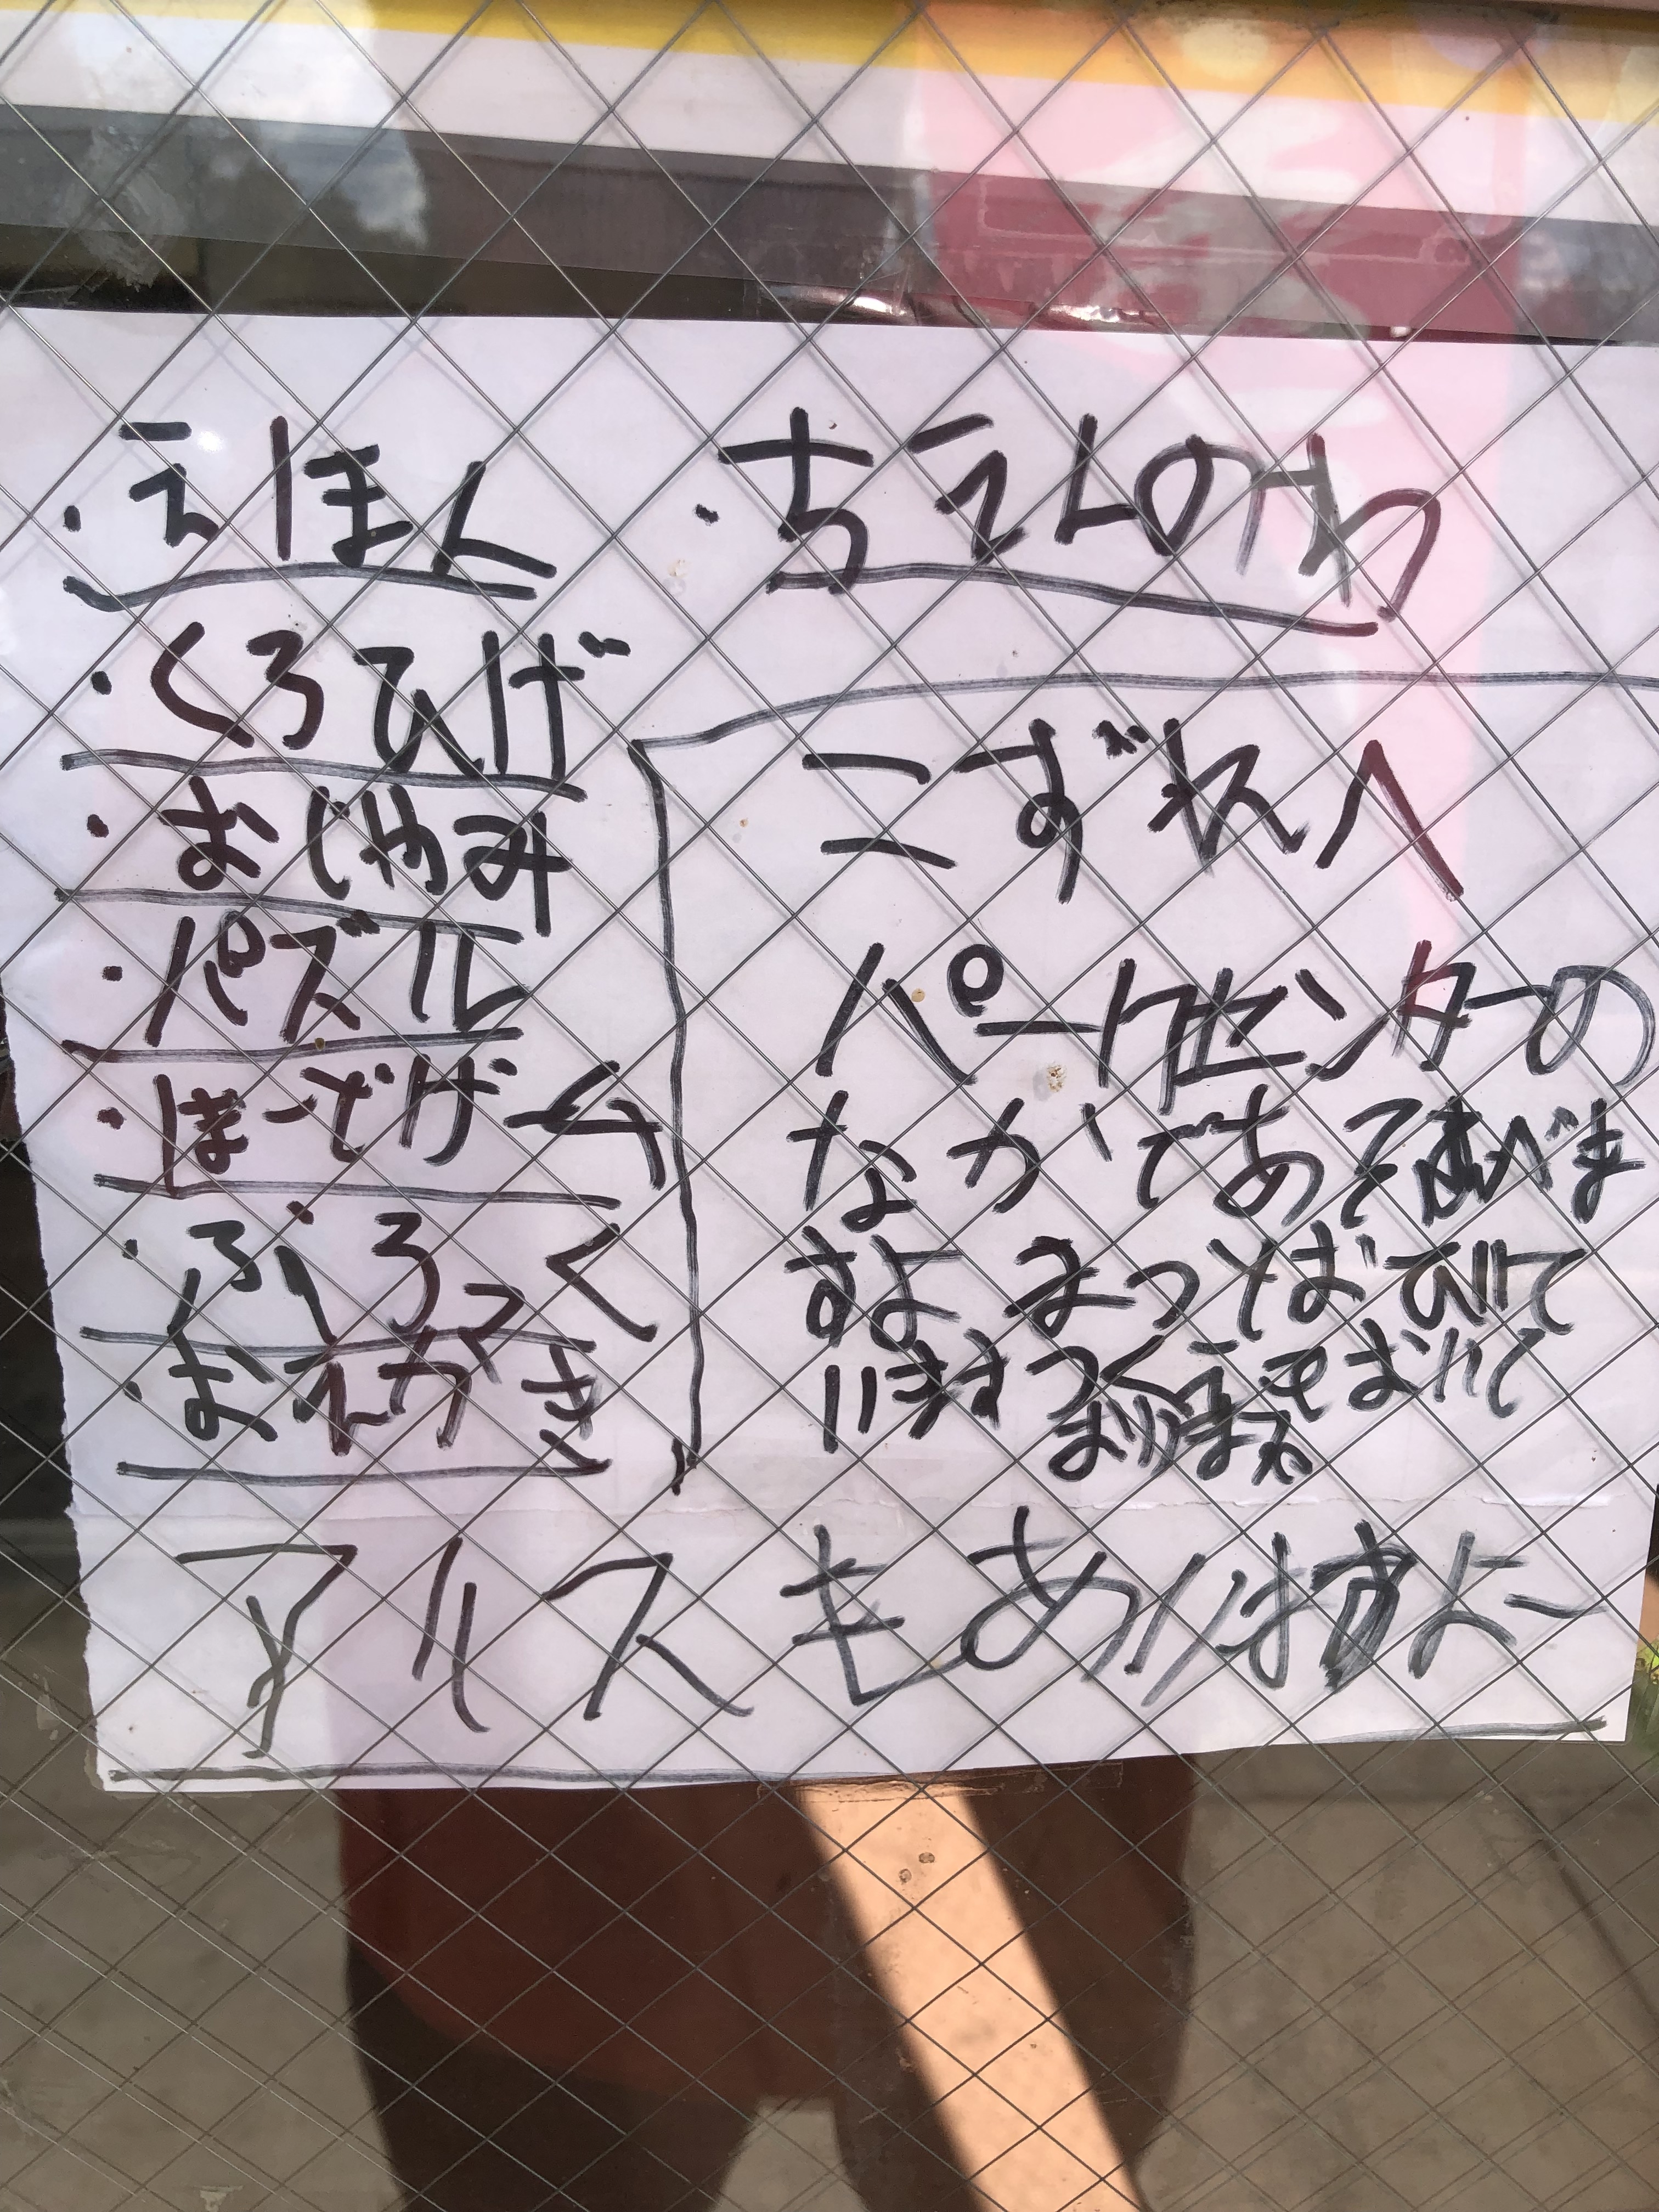 ・えほん
・くろひげ
・おじゃみ
・パズル
・ぼーどげーム
・ぶろっく
・おえかき
・ちえんのわ
こずれへ
パークセンターの
なかであそべま
すよ まっとおひいて
います つくえをおいて
ありますよ
アルスもありますよー